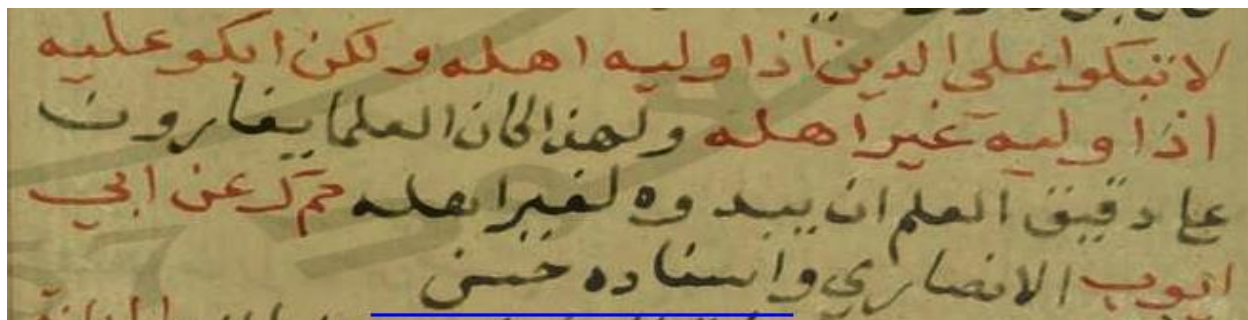 لا تبكوا علي الدين اذا وليه اهله ولكن ابكو عليه
اذا وليه غير اهله ولهذا كان العلما يغارون
علي دقيق العلم ان يبدوه لغير اهله حم ك عن ابي
ايوب الانصاري واسناده حسن